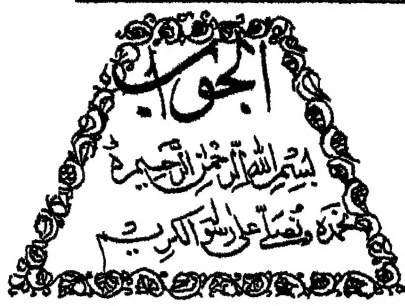 الجواب
بسم الله الرحمن الرحیم ہ
نحمدہ ونصلی علی رسولہ الکریم